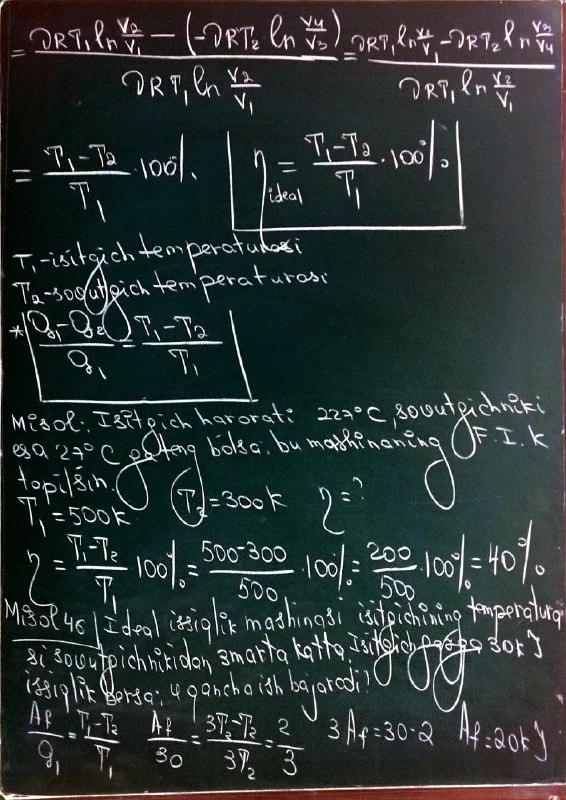 = νRT₁ ln V₂/V₁ − (−νRT₂ ln V₄/V₃) / νRT₁ ln V₂/V₁ = νRT₁ ln V₂/V₁ − νRT₂ ln V₃/V₄ / νRT₁ ln V₂/V₁
= T₁−T₂ / T₁ · 100% η ideal = T₁−T₂ / T₁ · 100%
T₁-isitgich temperaturasi
T₂-sovutgich temperaturasi
* Q₁−Q₂ / Q₁ = T₁−T₂ / T₁
Misol: Isitgich harorati 227°C, sovutgichniki
esa 27°C ga teng bo'lsa, bu mashinaning F.I.K
topilsin.
T₁=500K T₂=300K η=?
η = T₁−T₂ / T₁ 100% = 500-300 / 500 · 100% = 200 / 500 · 100% = 40%
Misol 46 Ideal issiqlik mashinasi isitgichining temperatura
si sovutgichnikidan 3 marta katta. Isitgich gazga 30kJ
issiqlik bersa, u qancha ish bajaradi?
Af / Q₁ = T₁−T₂ / T₁ Af / 30 = 3T₂−T₂ / 3T₂ = 2 / 3 3Af=30·2 Af=20kJ